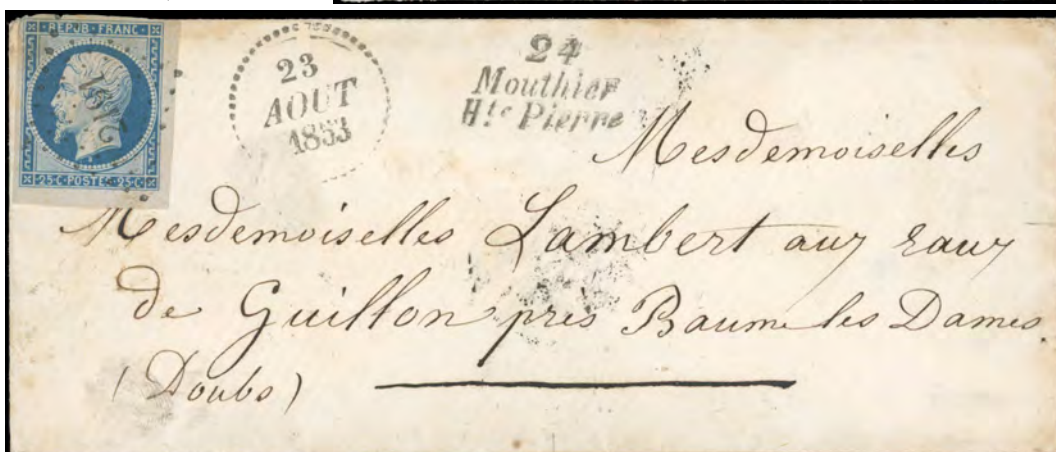 REPUB·FRANC·
25·C·POSTE·25·C
23
AOUT
1853
24
Mouthier
H.te Pierre
Mesdemoiselles
Mesdemoiselles Lambert aux eaux
de Guillon près Baume les Dames
(Doubs)